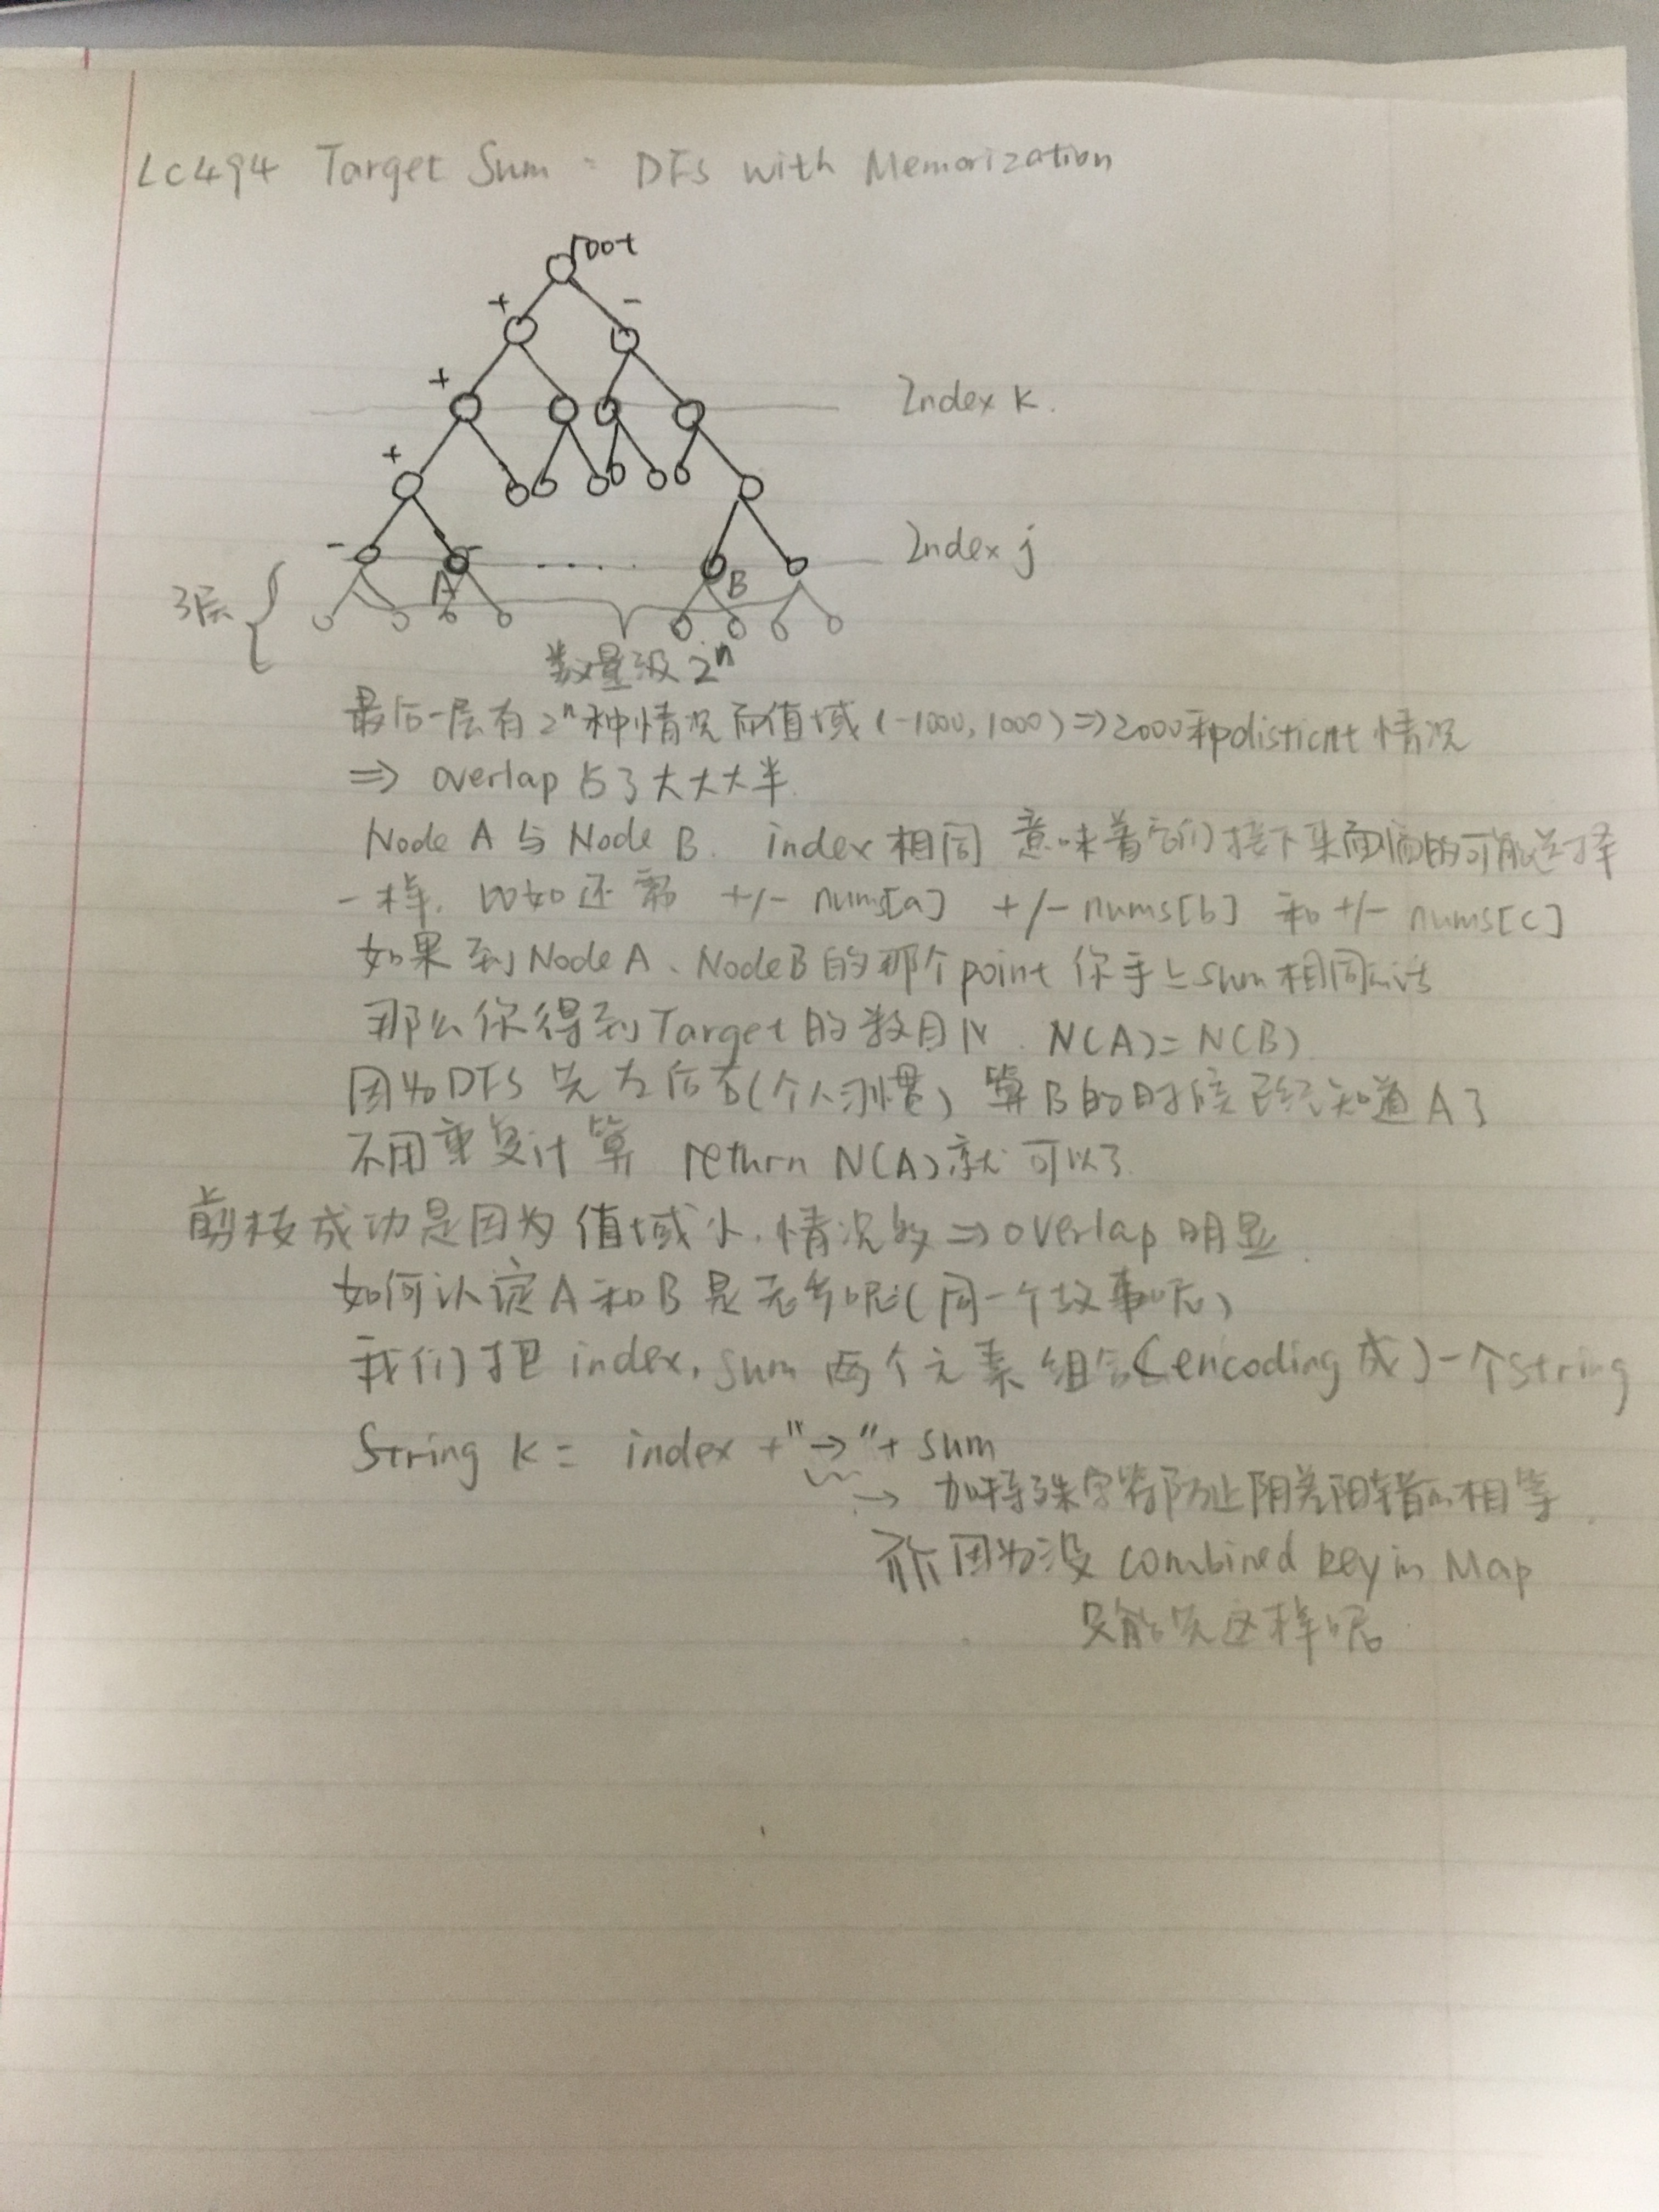 LC494 Target Sum - DFS with Memorization
root
+ -
+
Index k.
+
- -
Index j
A .... B
3层
数量级 2ⁿ
最后一层有 2ⁿ种情况 而值域 (-1000, 1000) ⇒ 2000种disticnt 情况
⇒ overlap 占了大大大半.
Node A 与 Node B. index 相同 意味着它们接下来面临的可能选择
一样. 比如还剩 +/- nums[a] +/- nums[b] 和 +/- nums[c]
如果到 Node A、Node B 的那个 point 你手上 sum 相同的话
那么你得到 Target 的数目 N. N(A) = N(B)
因为 DFS 先左后右(个人习惯) 算 B 的时候已经知道 A 了
不用重复计算 return N(A) 就可以了.
剪枝成功是因为值域小. 情况多 ⇒ overlap 明显.
如何认定 A 和 B 是 呢(同一个故事呢)
我们把 index, sum 两个元素组合(encoding 成)一个 string
String k = index + "→" + sum
→ 加特殊字符防止阴差阳错的相等.
因为没 combined key in Map
只能先这样呢